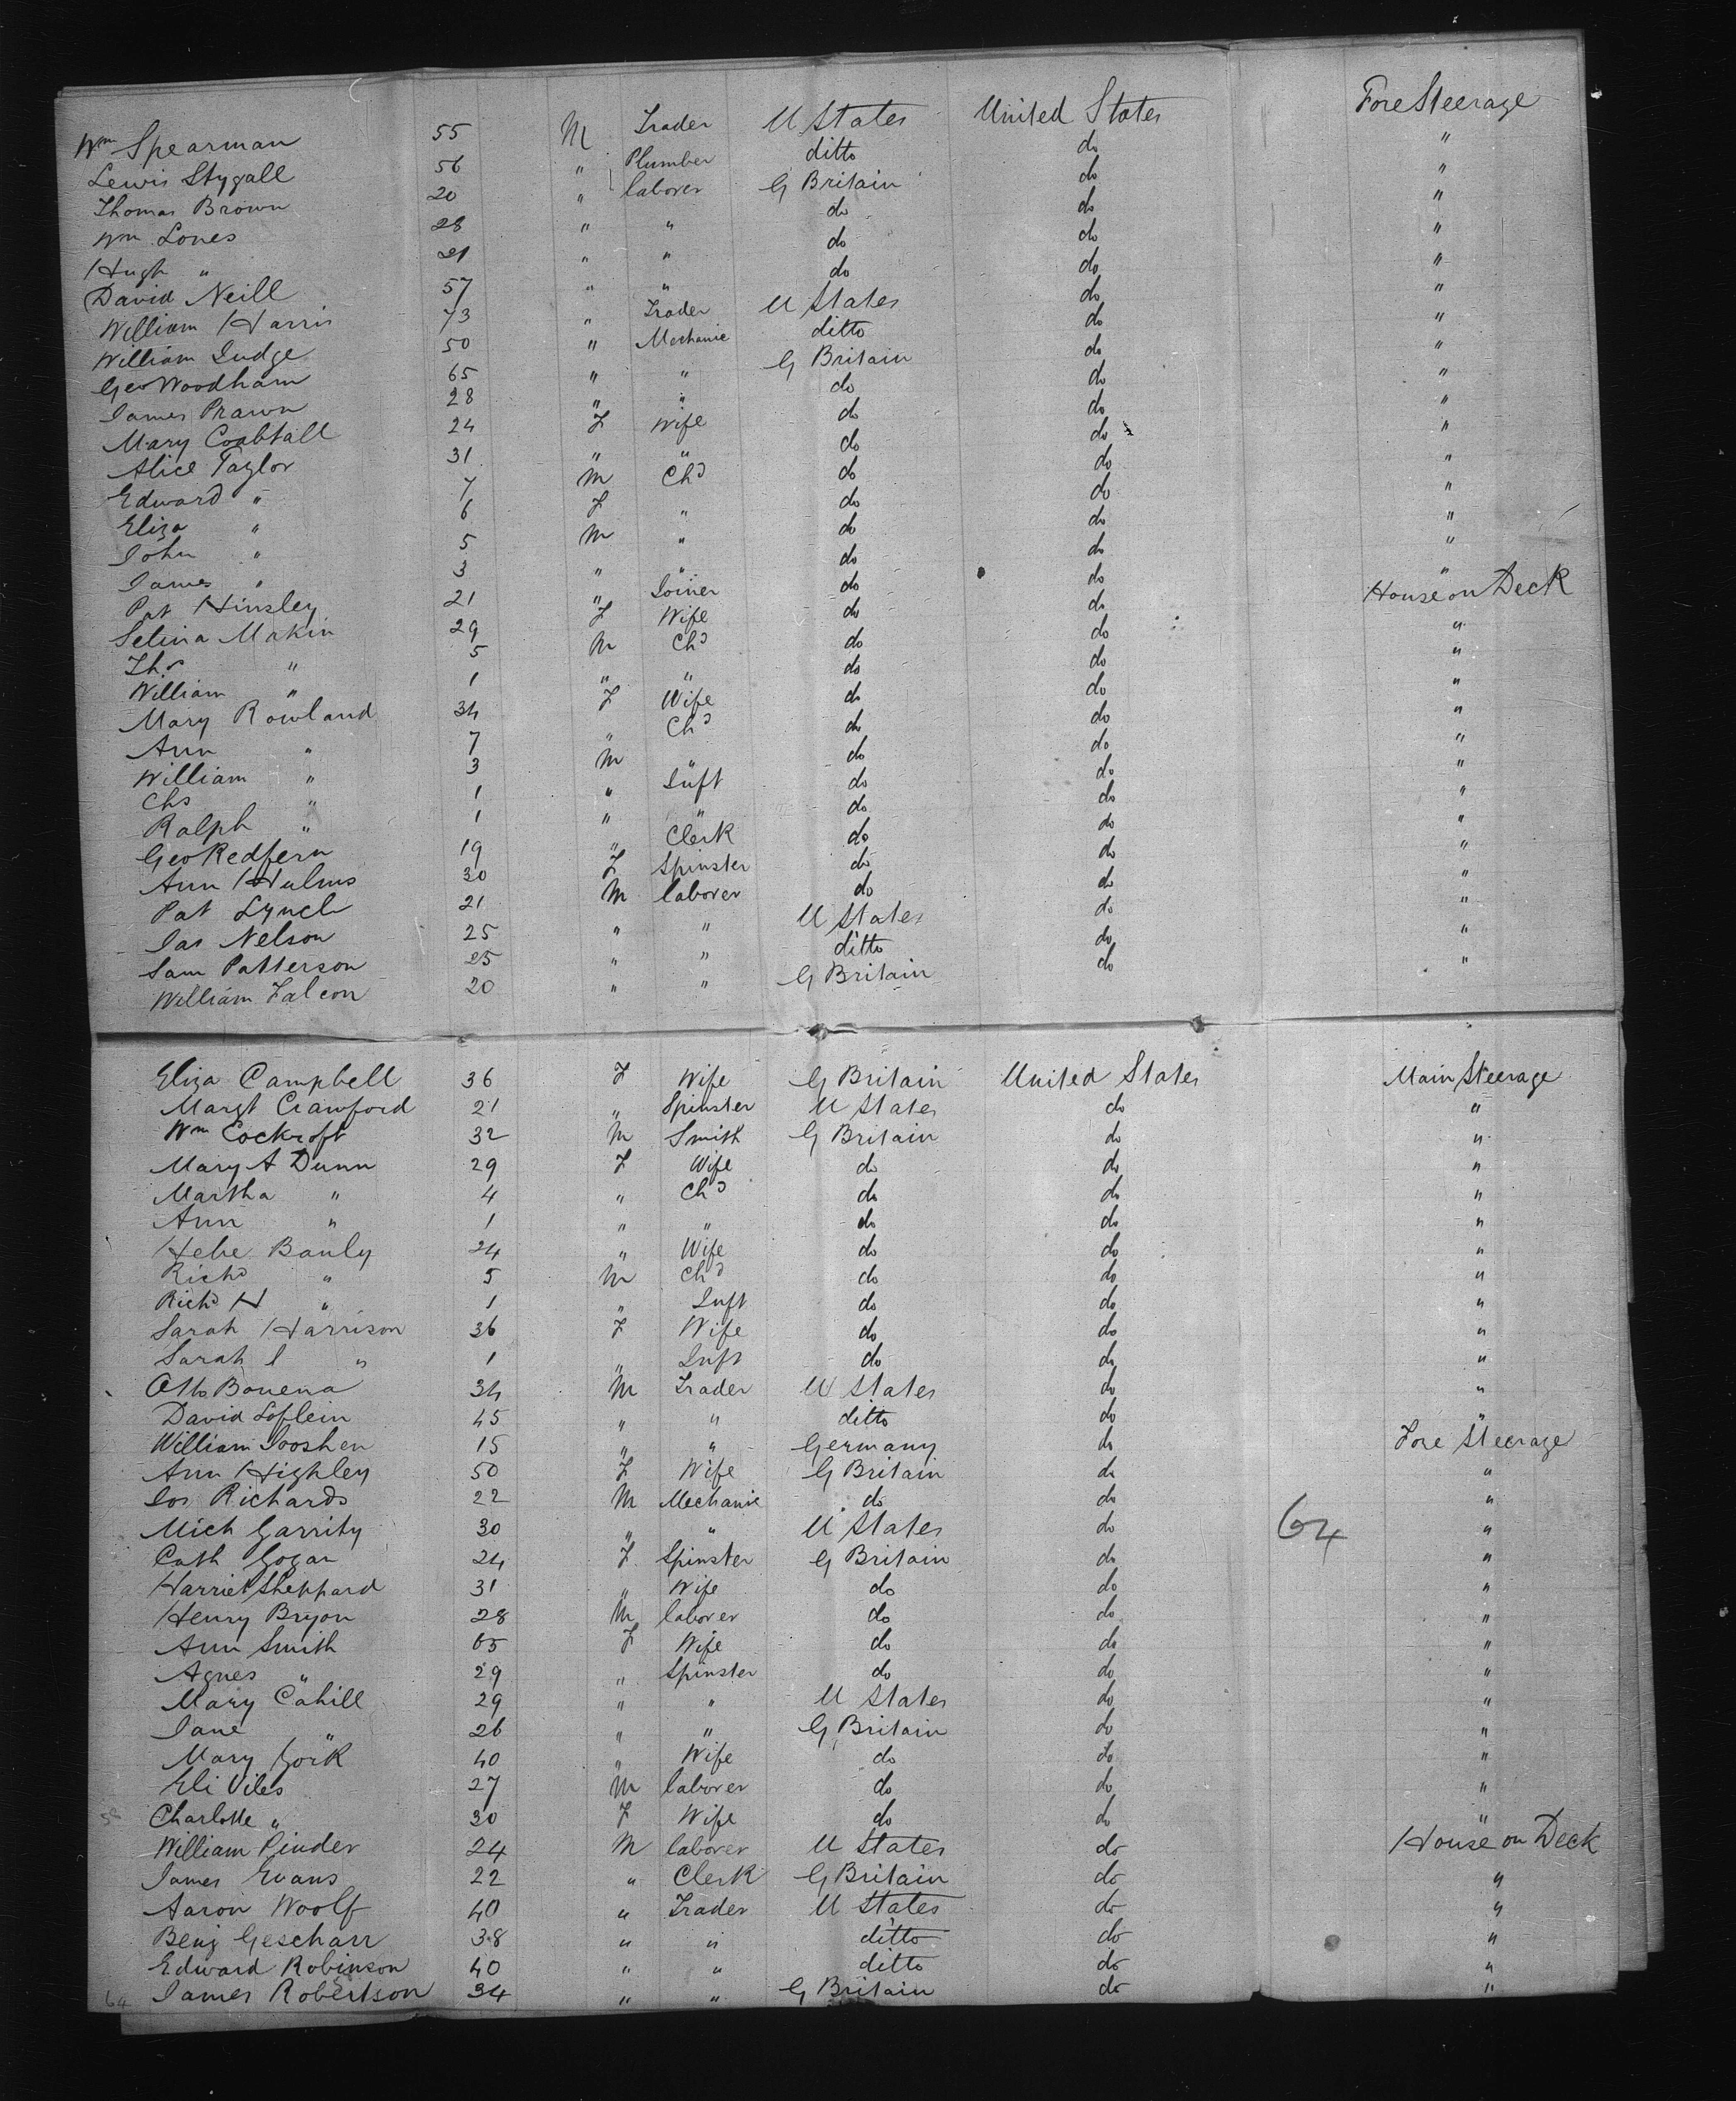 Wm Spearman 55 M Trader U States United States Fore Steerage
Lewis Stygall 56 " Plumber ditto do "
Thomas Brown 20 " laborer G Britain do "
Wm Lones 28 " " do do "
Hugh " 21 " " do do "
David Neill 57 " " do do "
William Harris 73 " Trader U States do "
William Judge 50 " Mechanic ditto do "
Geo Woodham 65 " " G Britain do "
James Prawn 28 " " do do "
Mary Coabtall 24 F Wife do do "
Alice Taylor 31 " " do do "
Edward " 7 M Chd do do "
Eliza " 6 F " do do "
John " 5 M " do do "
James " 3 " " do do "
Pat Hinsley 21 " Joiner do do House on Deck
Selina Makin 29 F Wife do do "
Ths " 5 M Chd do do "
William " 1 " " do do "
Mary Rowland 34 F Wife do do "
Ann " 7 " Chd do do "
William " 3 M " do do "
Chs " 1 " Inft do do "
Ralph " 1 " " do do "
Geo Redfern 19 " Clerk do do "
Ann Hulms 30 F Spinster do do "
Pat Lynch 21 M laborer do do "
Jas Nelson 25 " " U States do "
Sam Patterson 25 " " ditto do "
William Falcon 20 " " G Britain do "
Eliza Campbell 36 F Wife G Britain United States Main Steerage
Margt Crawford 21 " Spinster U States do "
Wm Cockroft 32 M Smith G Britain do "
Mary A Dunn 29 F Wife do do "
Martha " 4 " Chd do do "
Ann " 1 " " do do "
Hebe Bauly 24 " Wife do do "
Richd " 5 M Chd do do "
Richd H " 1 " Inft do do "
Sarah Harrison 36 F Wife do do "
Sarah J " 1 " Inft do do "
Otto Bonena 34 M Trader U States do "
David Loflein 45 " " ditto do "
William Sooshen 15 " " Germany do Fore Steerage
Ann Highley 50 F Wife G Britain do "
Jos Richards 22 M Mechanic do do "
Mich Garrity 30 " " U States do 64 "
Cath Gogan 24 F Spinster G Britain do "
Harriet Sheppard 31 " Wife do do "
Henry Bryon 28 M laborer do do "
Ann Smith 65 F Wife do do "
Agnes " 29 " Spinster do do "
Mary Cahill 29 " " U States do "
Jane " 26 " " G Britain do "
Mary York 40 " Wife do do "
Eli Viles 27 M laborer do do "
Charlotte " 30 F Wife do do "
William Pinder 24 M laborer U States do House on Deck
James Evans 22 " Clerk G Britain do "
Aaron Woolf 40 " Trader U States do "
Benj Gescharr 38 " " ditto do "
Edward Robinson 40 " " ditto do "
64 James Robertson 34 " " G Britain do "